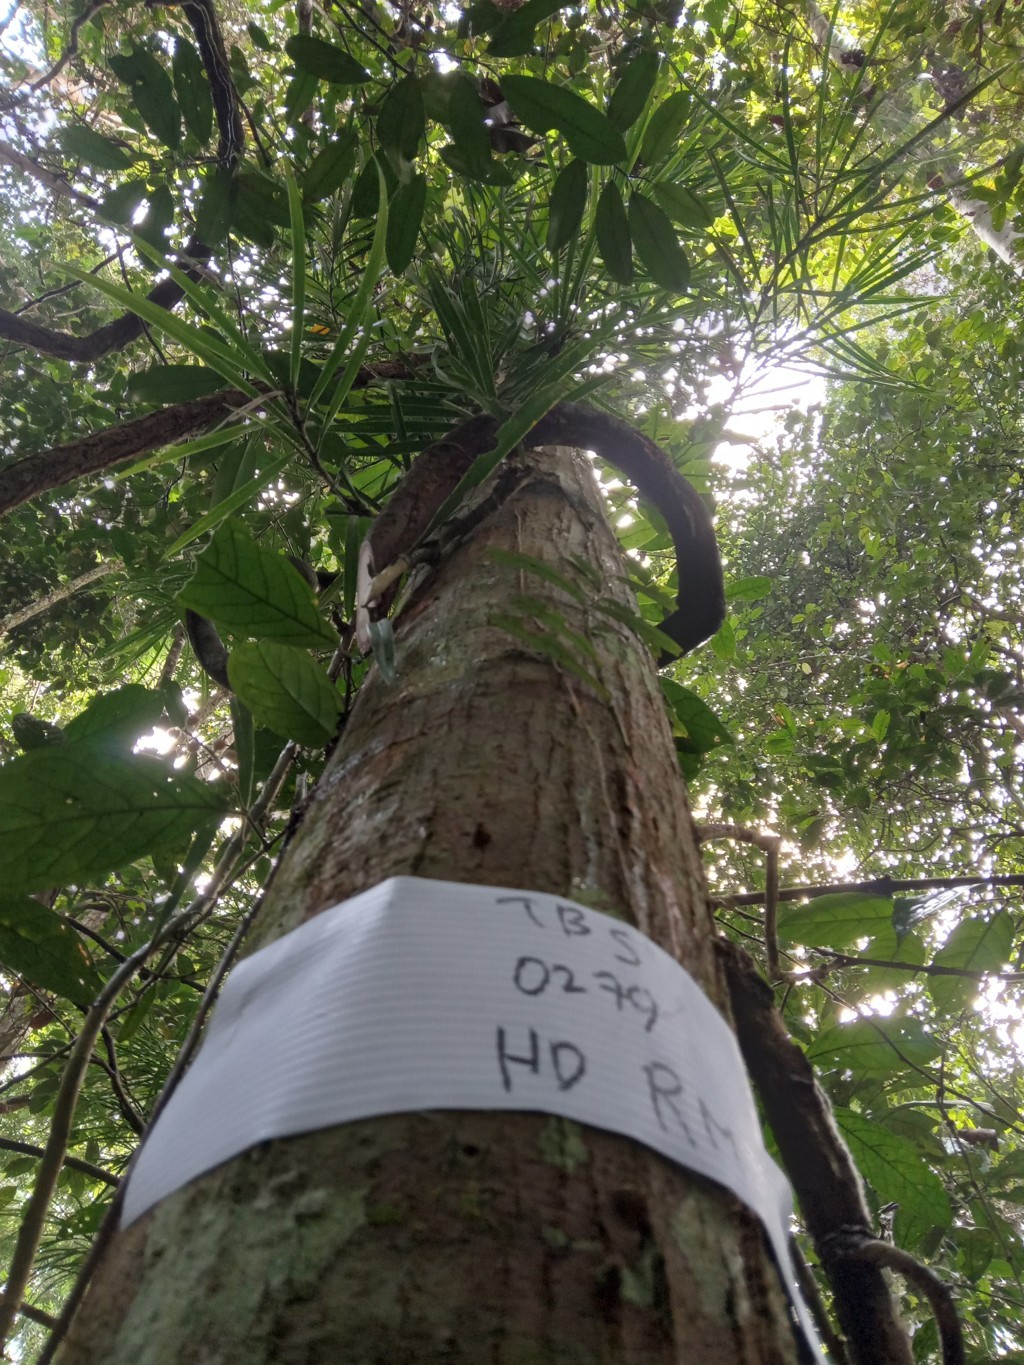 TBS
0279
HD RM